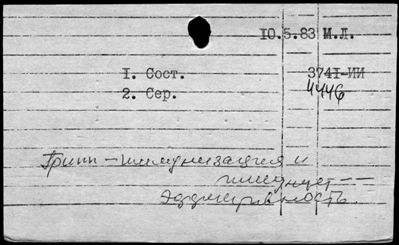 10.5.83 М.Л.
1. Сост. 3741-ИИ
2. Сер. 4446
Грипп - иммунизация и
иммунит--
эффективность.